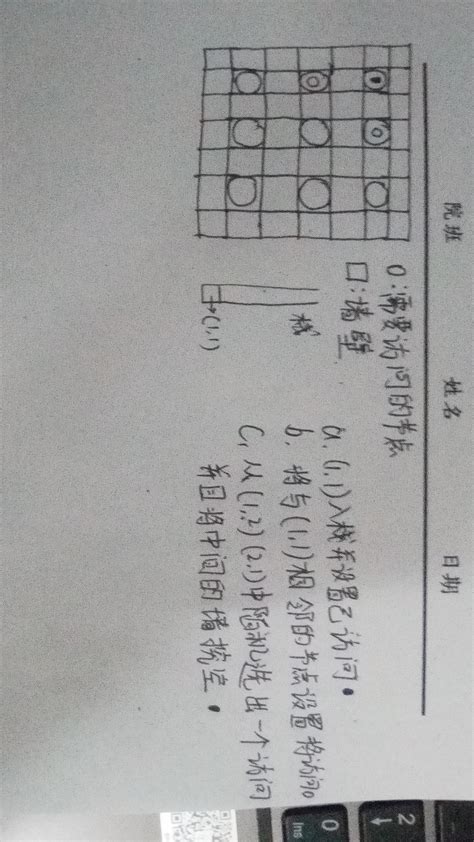 院班 姓名 日期
O:需要访问的节点
口:墙壁
栈
→(1,1)
a.(1,1)入栈并设置已访问●
b.将与(1,1)相邻的节点设置将访问◎
C,从(1,2)(2,1)中随机选出一个访问
并且将中间的墙挖空●
2
↓
0
Ins